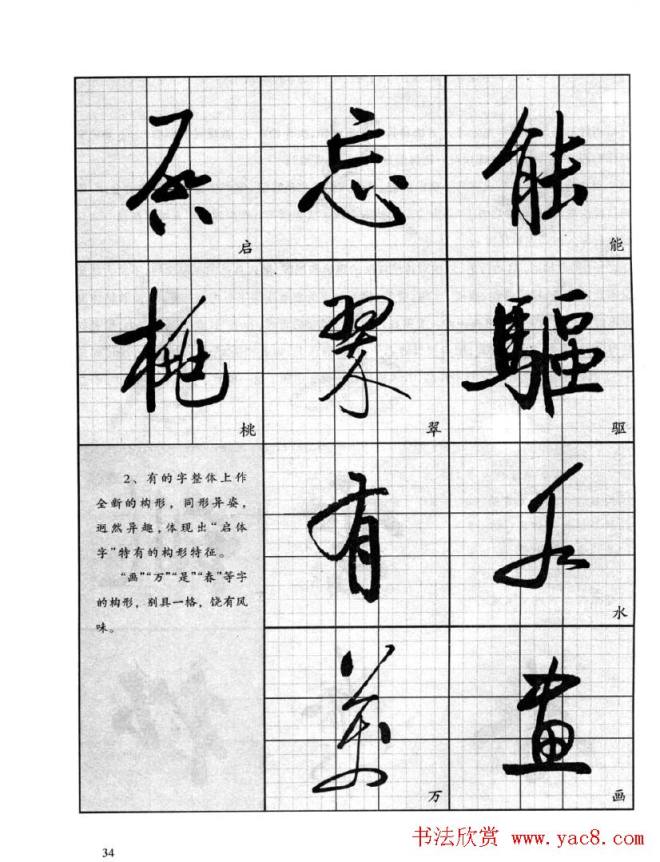 启 忘 能
启 能
桃 翠 驱
桃 翠 驱
有 水
水
2、有的字整体上作
全新的构形，同形异姿，
迥然异趣，体现出“启体
字”特有的构形特征。
“画”“万”“是”“春”等字
的构形，别具一格，饶有风
味。
萬 画
万 画
34
书法欣赏 www.yac8.com